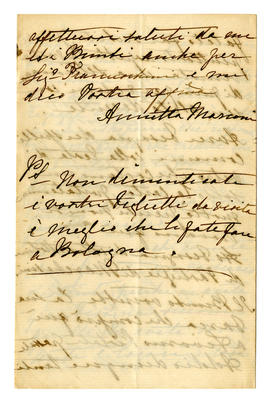 affettuosi saluti da me
Bimbi anche per
Sig.
dico Vostra aff
Annetta Marconi
PS Non dimenticate
i vostri biglietti da visita
è meglio che li fate fare
a Bologna.